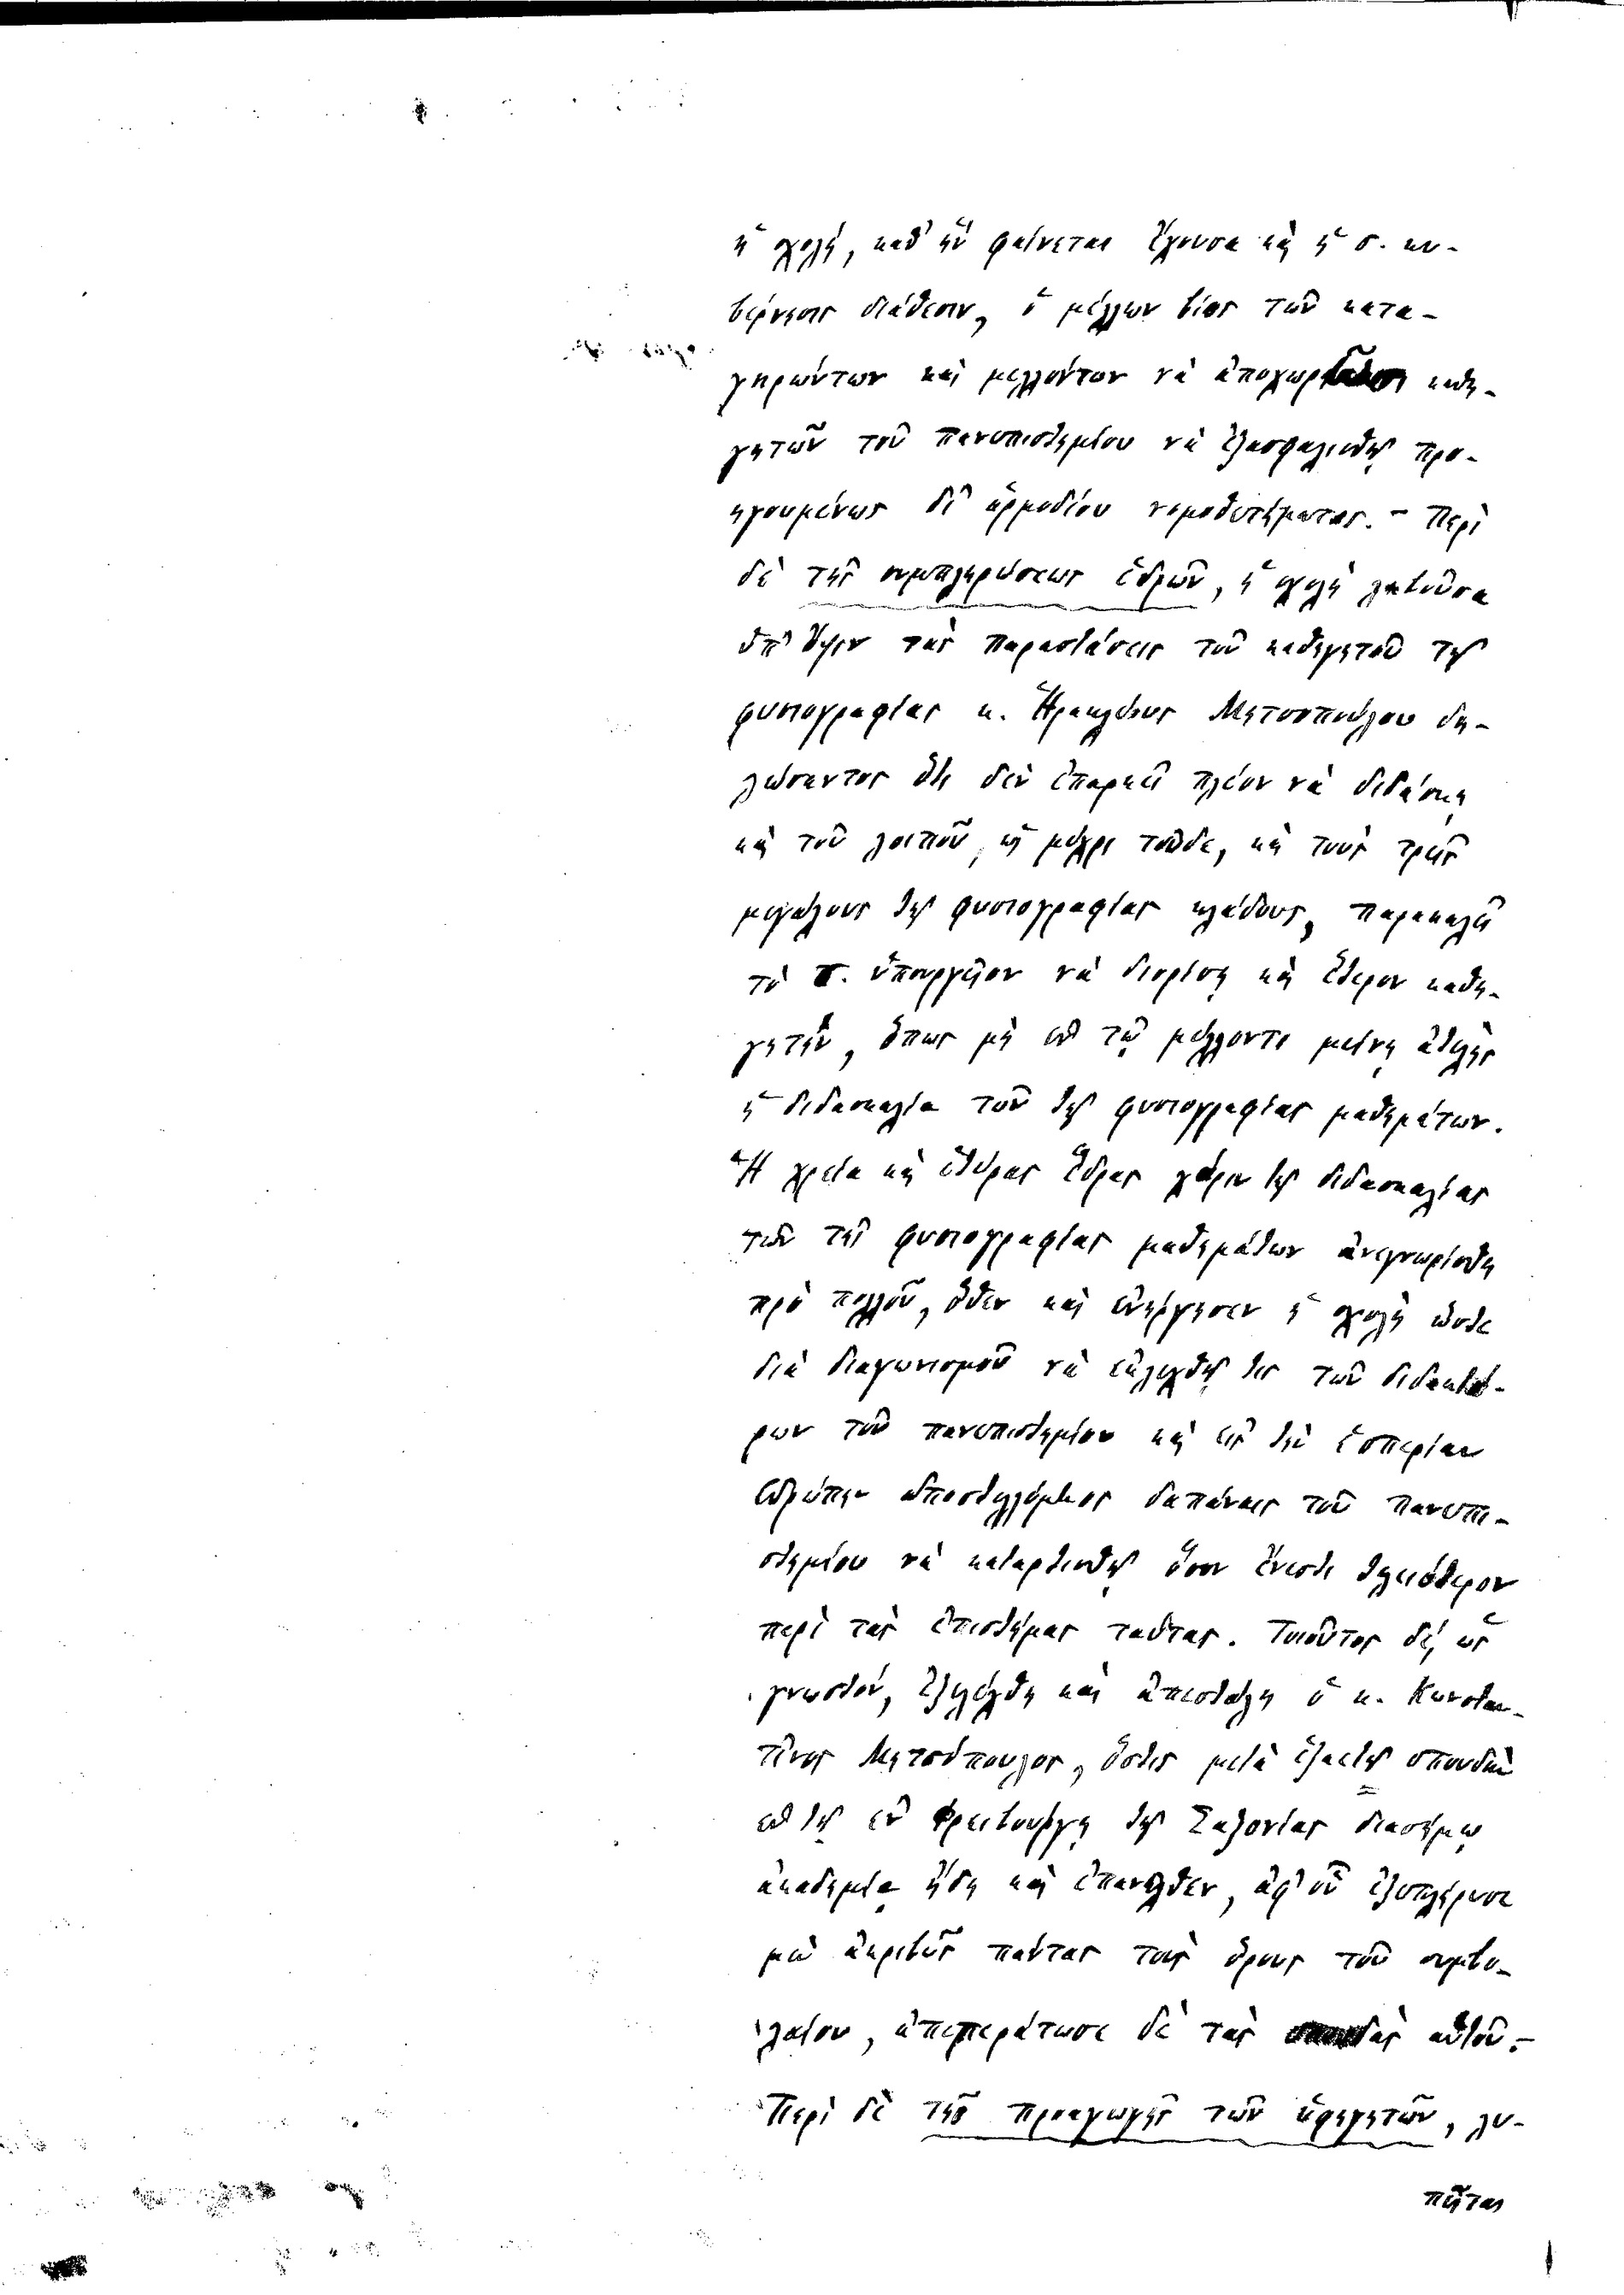 ἡ σχολή, καθ' ἣν φαίνεται ἔχουσα καὶ ἡ σ. κυ-
βέρνησις διάθεσιν, ὁ μέλλων βίος τῶν κατα-
γηρώντων καὶ μελλόντων νὰ ἀποχωρήσωσι καθη-
γητῶν τοῦ πανεπιστημίου νὰ ἐξασφαλισθῇ προ-
ηγουμένως δι' ἁρμοδίου νομοθετήματος. - Περὶ
δὲ τῆς συμπληρώσεως ἑδρῶν, ἡ σχολὴ λαβοῦσα
ὑπ' ὄψιν τὰς παραστάσεις τοῦ καθηγητοῦ τῆς
φυσιογραφίας κ. Ἡρακλέους Μητσοπούλου δη-
λώσαντος ὅτι δὲν ἐπαρκεῖ πλέον νὰ διδάσκῃ
καὶ τοῦ λοιποῦ, ὡς μέχρι τοῦδε, καὶ τοὺς τρεῖς
μεγάλους τῆς φυσιογραφίας κλάδους, παρακαλεῖ
τὸ σ. ὑπουργεῖον νὰ διορίσῃ καὶ ἕτερον καθη-
γητήν, ὅπως μὴ ἐν τῷ μέλλοντι μείνῃ ἀτελὴς
ἡ διδασκαλία τῶν τῆς φυσιογραφίας μαθημάτων.
Ἡ χρεία καὶ ἑτέρας ἕδρας χάριν τῆς διδασκαλίας
τῶν τῆς φυσιογραφίας μαθημάτων ἀνεγνωρίσθη
πρὸ πολλοῦ, ὅθεν καὶ ἐνήργησεν ἡ σχολὴ ὥστε
διὰ διαγωνισμοῦ νὰ ἐκλεχθῇ τις τῶν διδακτό-
ρων τοῦ πανεπιστημίου καὶ εἰς τὴν ἑσπερίαν
Εὐρώπην ἀποστελλόμενος δαπάναις τοῦ πανεπι-
στημίου νὰ καταρτισθῇ ὅσον ἔνεστι τελειότερον
περὶ τὰς ἐπιστήμας ταύτας. Τοιοῦτος δέ, ὡς
γνωστόν, ἐξελέχθη καὶ ἀπεστάλη ὁ κ. Κωνσταν-
τῖνος Μητσόπουλος, ὅστις μετὰ ἑξαετῆ σπουδὴν
ἐν τῇ ἐν Φρειβούργῃ τῆς Σαξονίας διασήμῳ
ἀκαδημίᾳ ἤδη καὶ ἐπανῆλθεν, ἀφ' οὗ ἐξεπλήρωσε
μὲν ἀκριβῶς πάντας τοὺς ὅρους τοῦ συμβο-
λαίου, ἀπεπεράτωσε δὲ τὰς σπουδὰς αὑτοῦ. -
Περὶ δὲ τῆς προαγωγῆς τῶν ὑφηγητῶν, λυ-
πεῖται